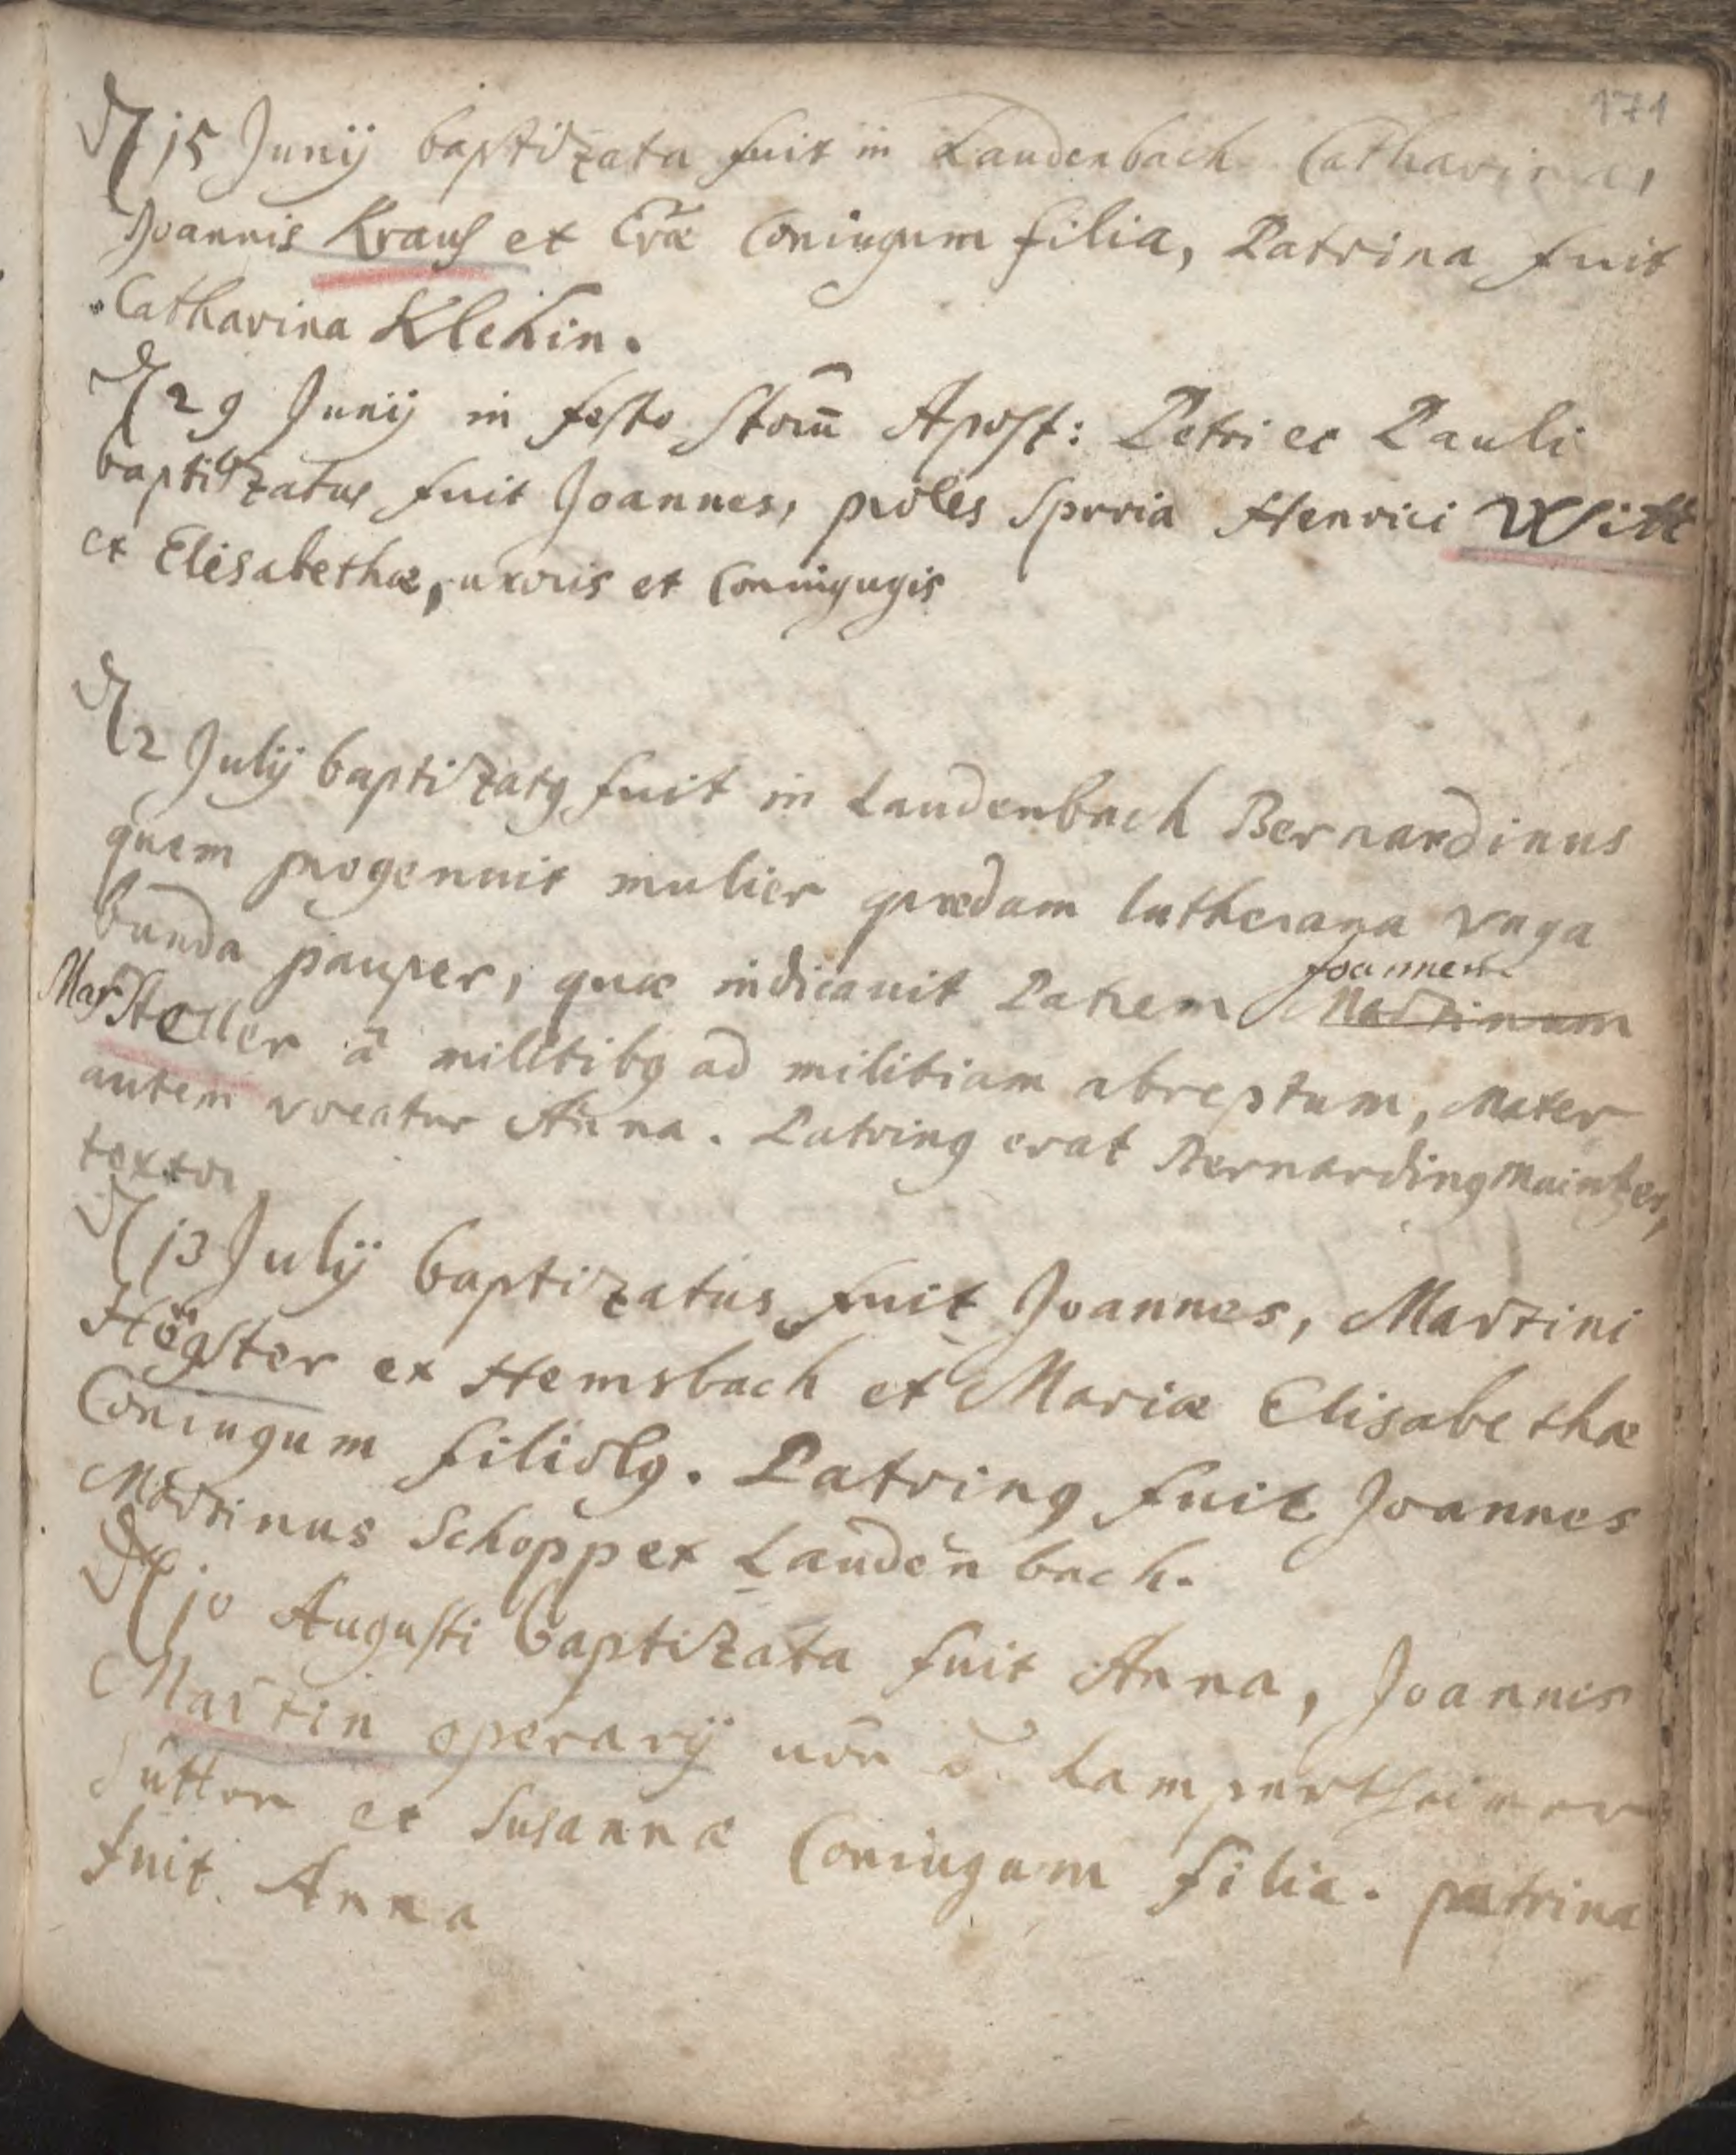 171
15 Junij baptizata fuit in Laudenbach Catharina,
Joannis Kraus et Evæ Coniugum filia, Patrina fuit
Catharina Klehin.
29 Junij in festo Storũ Apost: Petri et Pauli
baptizatus fuit Joannes, proles spuria Henrici Witt
et Elisabethæ, uxoris et Coniugugis
2 Julij baptizatg fuit in Laudenbach Bernardinus
quem progenuit mulier quædam lutherana vaga
bunda pauper, quæ indicavit Patrem Joannem Martinum
Marsteller â militibg ad militiam abreptum, Mater
autem vocatur Anna. Patring erat Bernarding Maintzer,
textor
13 Julij baptizatus fuit Joannes, Martini
Högster ex Hemsbach et Mariæ Elisabethæ
Coniugum filiolg. Patring fuit Joannes
Martinus Schopp ex Laudenbach.
10 Augusti baptizata fuit Anna, Joannes
Martin operarij von d. Lampertheimer
Hütten et Susannæ Coniugum filia. patrina
fuit Anna